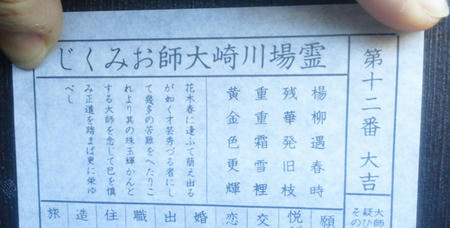 霊場川崎大師おみくじ
第十二番 大吉
楊柳遇春時
残華発旧枝
重重霜雪裡
黄金色更輝
花木春に逢ふて萠え出る
が如く才芸秀づる者にし
て幾多の苦難をへたりこ
れより其の珠玉輝かんと
する大師を念じて已を慎
み正道を踏まば更に栄ゆ
べし
大師
疑ひ
その
願
悦
交
恋
婚
出
職
住
造
旅